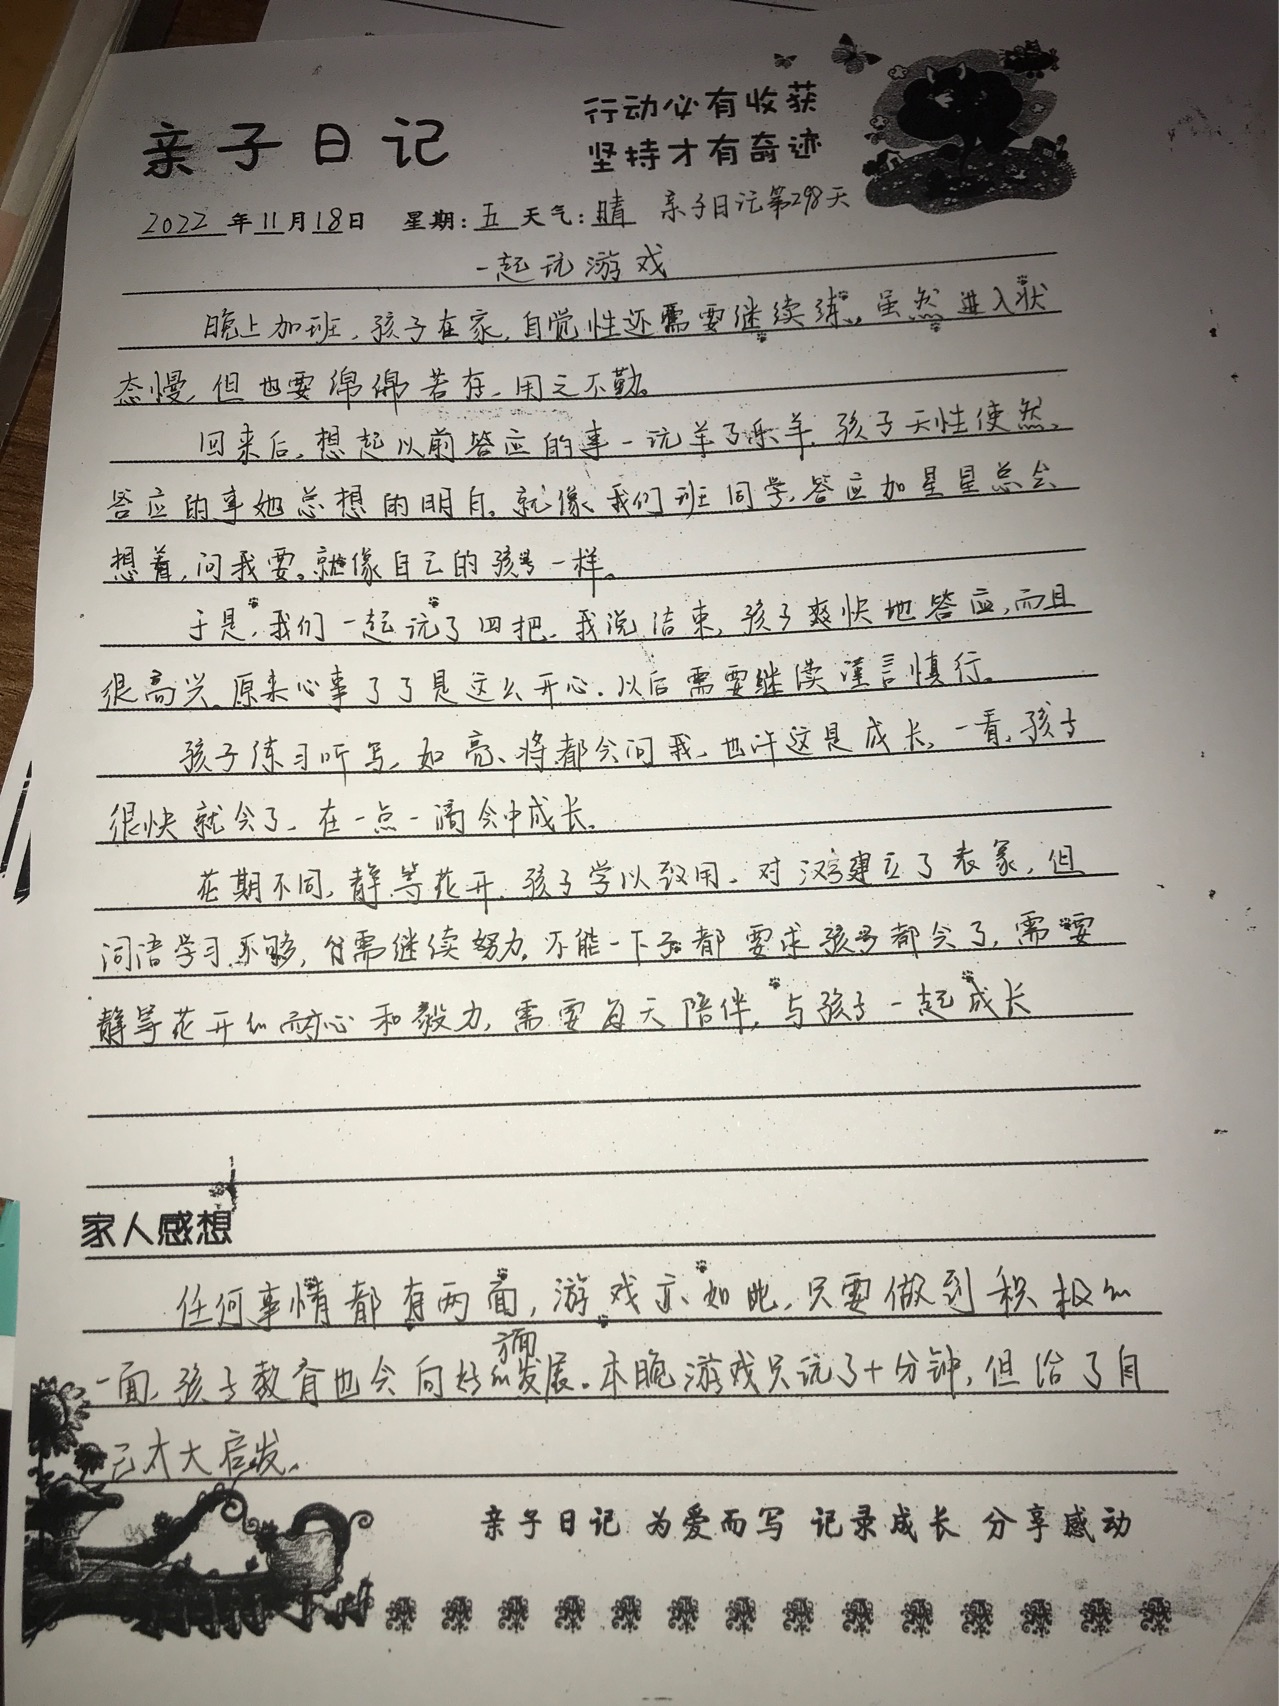 亲子日记
行动必有收获
坚持才有奇迹
2022年11月18日 星期:五 天气:晴 亲子日记第298天
一起玩游戏
晚上加班,孩子在家,自觉性还需要继续练。虽然进入状
态慢,但也要绵绵若存,用之不勤。
回来后,想起以前答应的事一玩羊了个羊,孩子天性使然,
答应的事她总想的明白。就像我们班同学,答应加星星总会
想着,问我要。就像自己的孩子一样。
于是,我们一起玩了四把,我说结束,孩子爽快地答应,而且
很高兴。原来心事了了是这么开心,以后需要继续谨言慎行。
孩子练习听写,如亮、将都会问我,也许这是成长,一看,孩子
很快就会了,在一点一滴会中成长。
花期不同,静等花开,孩子学以致用,对汉字建立了表象,但
词语学习不够,仍需继续努力。不能一下子都要求孩子都会了,需要
静等花开的耐心和毅力,需要每天陪伴,与孩子一起成长
家人感想
任何事情都有两面,游戏亦如此,只要做到积极的
一面,孩子教育也会向好的方面发展。本晚游戏只玩了十分钟,但给了自
己太大启发。
亲子日记 为爱而写 记录成长 分享感动